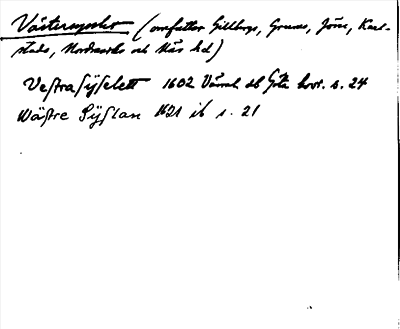 Västersysslet (omfattar Gillbergs, Grums, Jösse, Karl-
stads, Nordmarks och Näs hd)
Vestrasÿselett 1602 Värml. Jb Göta kvot. s. 24
Wästre Sÿslan 1621 ib s. 21